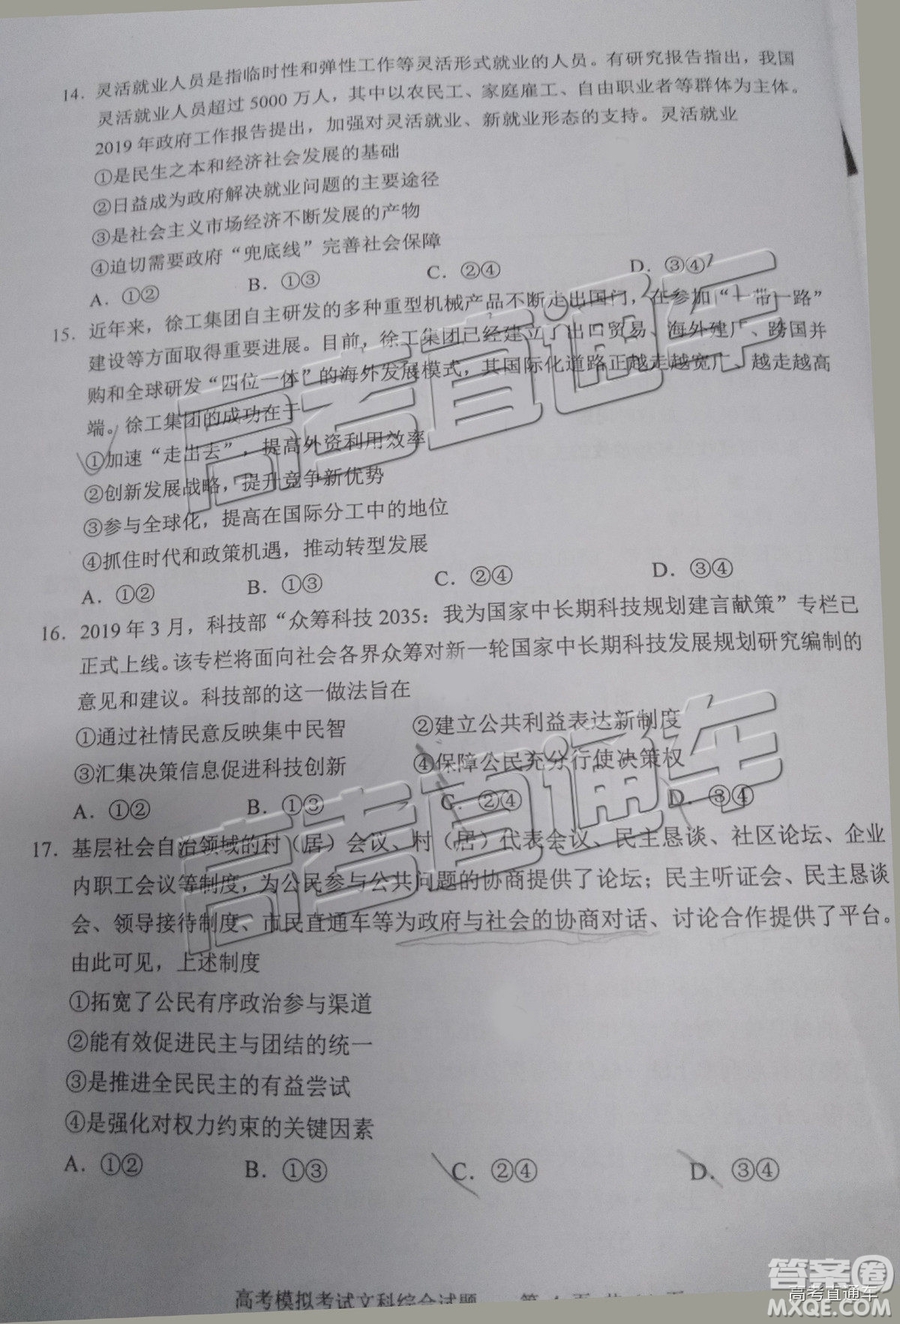 14. 灵活就业人员是指临时性和弹性工作等灵活形式就业的人员。有研究报告指出，我国
灵活就业人员超过 5000 万人，其中以农民工、家庭雇工、自由职业者等群体为主体。
2019 年政府工作报告提出，加强对灵活就业、新就业形态的支持。灵活就业
①是民生之本和经济社会发展的基础
②日益成为政府解决就业问题的主要途径
③是社会主义市场经济不断发展的产物
④迫切需要政府“兜底线”完善社会保障
A. ①② B. ①③ C. ②④ D. ③④
15. 近年来，徐工集团自主研发的多种重型机械产品不断走出国门，在参加“一带一路”
建设等方面取得重要进展。目前，徐工集团已经建立了出口贸易、海外建厂、跨国并
购和全球研发“四位一体”的海外发展模式，其国际化道路正越走越宽广、越走越高
端。徐工集团的成功在于
①加速“走出去”，提高外资利用效率
②创新发展战略，提升竞争新优势
③参与全球化，提高在国际分工中的地位
④抓住时代和政策机遇，推动转型发展
A. ①② B. ①③ C. ②④ D. ③④
16. 2019 年 3 月，科技部“众筹科技 2035：我为国家中长期科技规划建言献策”专栏已
正式上线。该专栏将面向社会各界众筹对新一轮国家中长期科技发展规划研究编制的
意见和建议。科技部的这一做法旨在
①通过社情民意反映集中民智 ②建立公共利益表达新制度
③汇集决策信息促进科技创新 ④保障公民充分行使决策权
A. ①② B. ①③ C. ②④ D. ③④
17. 基层社会自治领域的村（居）会议、村（居）代表会议、民主恳谈、社区论坛、企业
内职工会议等制度，为公民参与公共问题的协商提供了论坛；民主听证会、民主恳谈
会、领导接待制度、市民直通车等为政府与社会的协商对话、讨论合作提供了平台。
由此可见，上述制度
①拓宽了公民有序政治参与渠道
②能有效促进民主与团结的统一
③是推进全民民主的有益尝试
④是强化对权力约束的关键因素
A. ①② B. ①③ C. ②④ D. ③④
高考模拟考试文科综合试题
高考直通车
高考直通车
答案圈
高考直通车
MXQE.COM